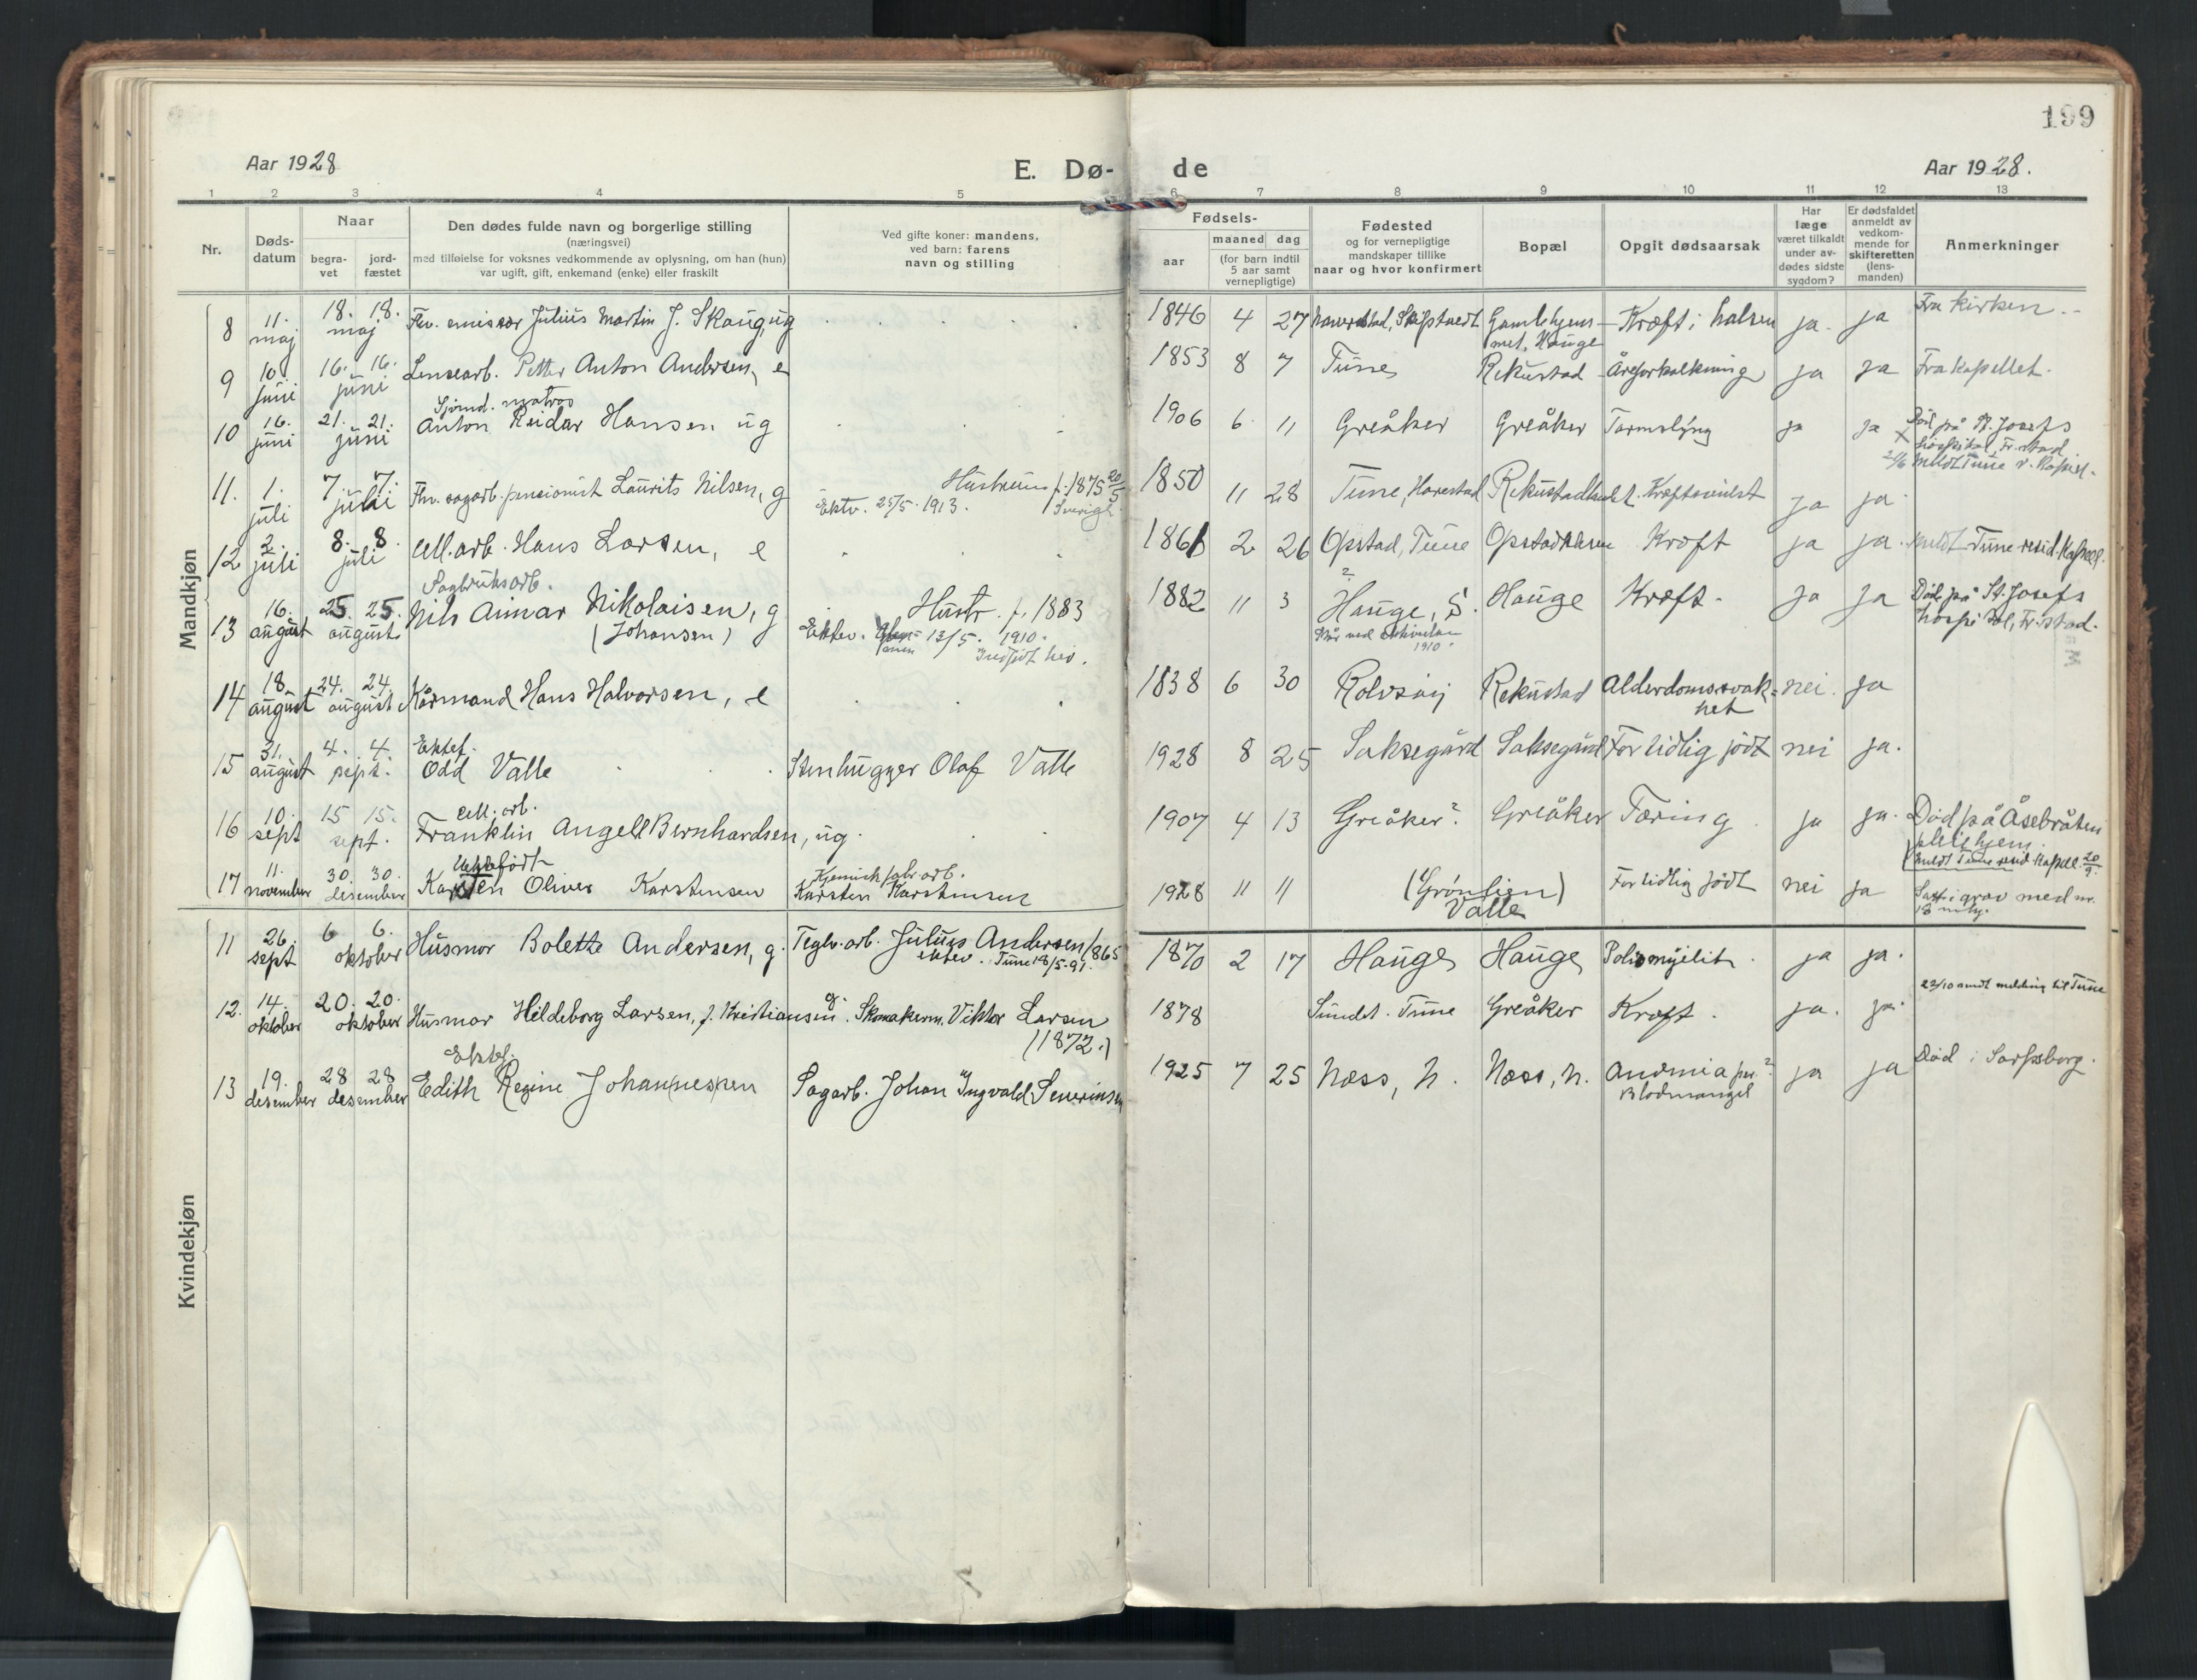 199
Aar 1928
E. Dø-
de
Aar 1928.
1 2 3 4 5 6 7 8 9 10 11 12 13
Nr.
Døds-
datum
Naar
begra-
vet
jord-
fæstet
Den dødes fulde navn og borgerlige stilling
(næringsvei)
med tilføielse for voksnes vedkommende av oplysning, om han (hun)
var ugift, gift, enkemand (enke) eller fraskilt
Ved gifte koner: mandens,
ved barn: farens
navn og stilling
Fødsels-
aar
maaned dag
(for barn indtil
5 aar samt
vernepligtige)
Fødested
og for vernepligtige
mandskaper tillike
naar og hvor konfirmert
Bopæl
Opgit dødsaarsak
Har
læge
været tilkaldt
under av-
dødes sidste
sygdom?
Er dødsfaldet
anmeldt av
vedkom-
mende for
skifteretten
(lens-
manden)
Anmerkninger
Mandkjøn
8 11. maj 18. 18. maj Fhv. emissær Julius Martin J. Skaug, ug 1846 4 27 Skiptvedt Gamlehjem-
met, Hauge
Kræft i halsen ja. ja Fra kirken.
9 10 juni 16. 16. juni Lensearb. Petter Anton Andersen, e 1853 8 7 Tune Rekustad Åreforkalkning ja ja Fra kapellet.
Sjømd. matros
10 16. juni 21. 21. juni Anton Reidar Hansen ug 1906 6 11 Greåker Greåker Tarmslyng ja ja Död på St. Josefs
Hospital, Fr.stad
meldt Tune r. Kapel.
11. 1. juli 7 7. juli Fhv. sagarb. pensionist Laurits Nilsen, g Hustruen f. 1875 20/5
Ektv. 25/5 1913. Sverige
1850 11 28 Tune, Harestad Rekustadholt. Kræftsvulst ja ja.
12 2. juli 8. 8. juli Cell.arb. Hans Larsen, e 1861 2 26 Opstad, Tune Opstadklasen Kræft ja ja. meldt Tune resid. Kapel.
Sagbruksarb.
13 16. august 25. 25. august. Nils Aimar Nikolaisen, g
(Johansen)
Hustr. f. 1883
Ektev. 13/5. 1910.
1882 11 3 ? Hauge, S. Hauge Kræft. ja ja Död på St. Josefs
hospital, Fr.stad.
1910.
14 18. august 24. 24. august Kårmand Hans Halvorsen, e 1838 6 30 Rolvsøy Rekustad Alderdomssvak-
het
nei. ja
Ektef.
15 31. august 4. 4. sept. Odd Valle Stenhugger Olaf Valle 1928 8 25 Saksegård Saksegård For tidlig födt nei ja.
Cell. arb.
16 10. sept 15 15. sept. Franklin Angell Bernhardsen, ug. 1907 4 13 Greåker? Greåker Tæring ja ja. Död på Åsebråten
pleiehjem.
meldt Tune resid Kapel. 20/9.
Uektefödt
17 11. november 30. 30. desember Karsten Oliver Karstensen Kjemisk fabr arb.
Karsten Karstensen
1928 11 11 (Grønlien)
Valle
For tidlig födt nei ja Satt i grav med nr.
Kvindekjøn
11 26. sept 6 6. oktober Husmor Bolette Andersen, g. Teglv. arb. Julius Andersen 1865
ektev. Tune 18/5-91.
1870 2 17 Hauge Hauge Poliomyelit. ja ja.
12. 14. oktober 20. 20. oktober Husmor Hildeborg Larsen, f. Kristiansen g. Skomakerm. Viktor Larsen
(1872.)
1878 Sundet. Tune Greåker Kræft. ja. ja. 23/10 sendt melding til Tune
Ektef.
13 19. desember 28 28 desember Edith Regine Johannessen Sagarb. Johan Ingvald Severinsen 1925 7 25 Næss, N. Næss, N. Anæmia per.?
Blodmangel
ja ja Död i Sarpsborg.